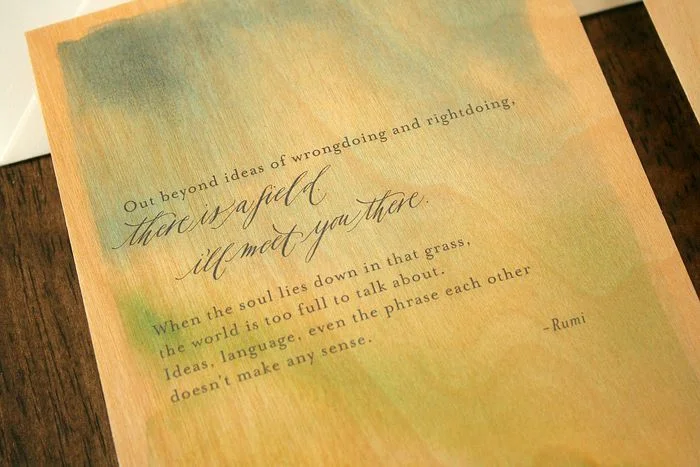 Out beyond ideas of wrongdoing and rightdoing,
there is a field
i'll meet you there.
When the soul lies down in that grass,
the world is too full to talk about.
Ideas, language, even the phrase each other
doesn't make any sense.
–Rumi